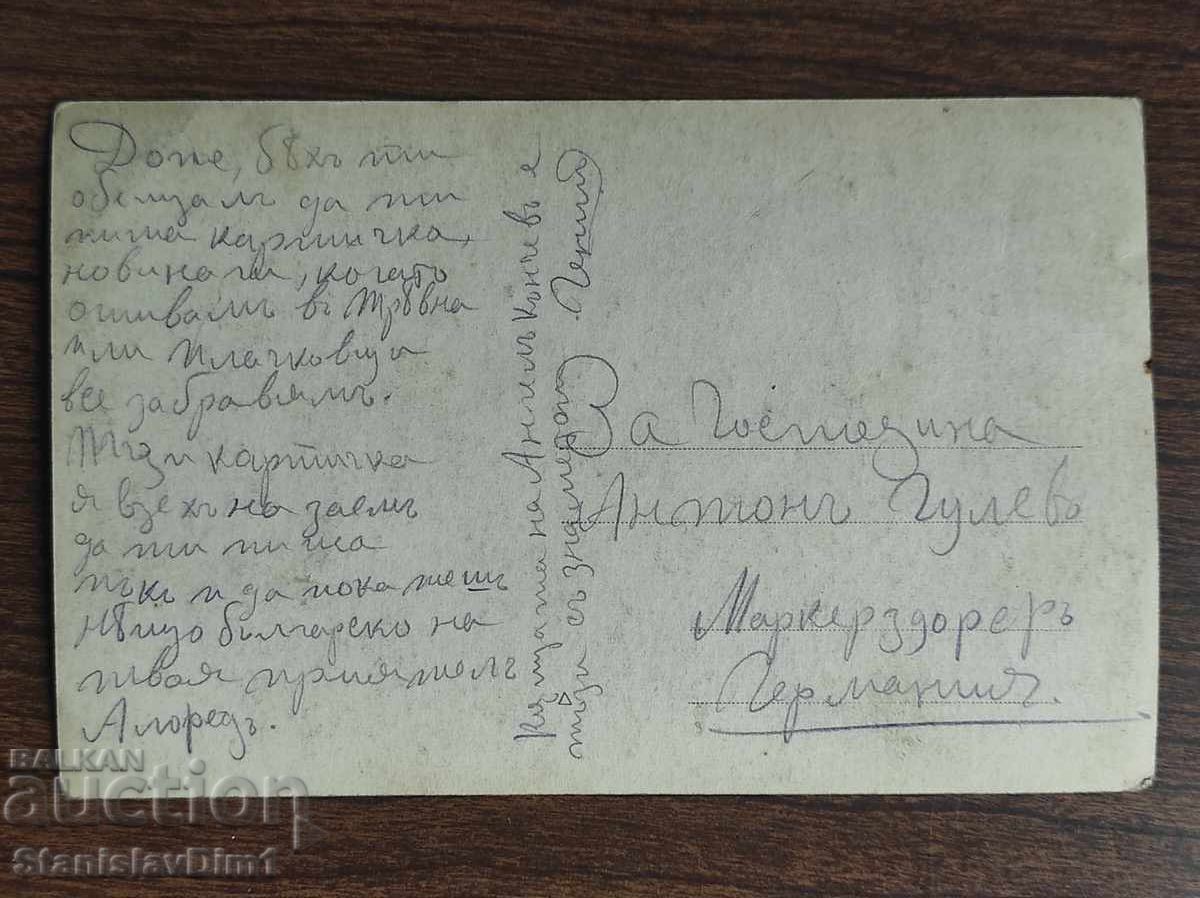 Доне, бѣхъ ти
обещалъ да ти
пиша картичка,
но винаги, когато
отивамъ въ Трѣвна
или Плачковци
все забравямъ.
Тази картичка
я взехъ на заемъ
да ти пиша
пъкъ и да покажешъ
нѣщо българско на
твоя приятель
Алфредъ.
Къщата на Ангелъ Кънчевъ е
тази съ знамето
Гений
За Господина
Антонъ Гулевъ
Маркерздорфъ
Германия.
BALKAN
auction
StanislavDim1